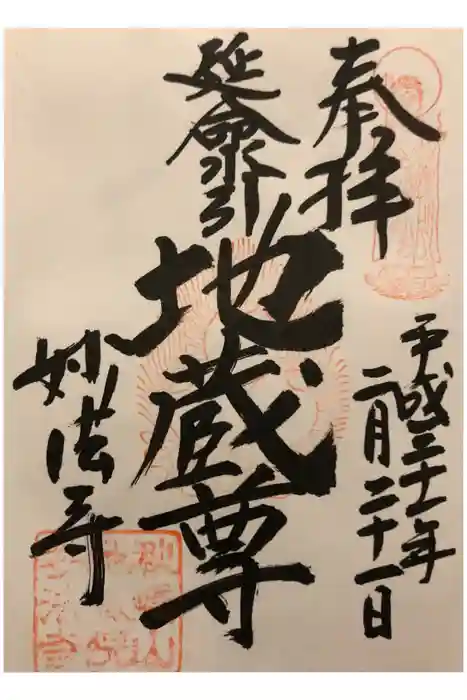 奉拝
平成三十一年
二月二十一日
延命
地蔵尊
妙法寺